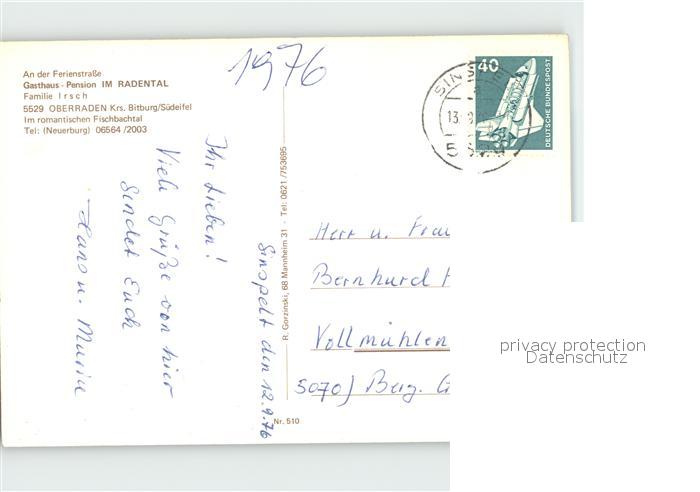 An der Ferienstraße
Gasthaus - Pension IM RADENTAL
Familie Irsch
5529 OBERRADEN Krs. Bitburg/Südeifel
Im romantischen Fischbachtal
Tel: (Neuerburg) 06564/2003
1976
40
DEUTSCHE BUNDESPOST
SINSPE
13.
Sinspelt den 12.9.76
Ihr Lieben!
Viele Grüße von hier
Sendet Euch
Hans u. Maria
R. Gorzinski, 68 Mannheim 31 · Tel: 0621/753695
Nr. 510
Herr u. Frau
Bernhard
Vollmühlen
5070) Berg. G
privacy protection
Datenschutz